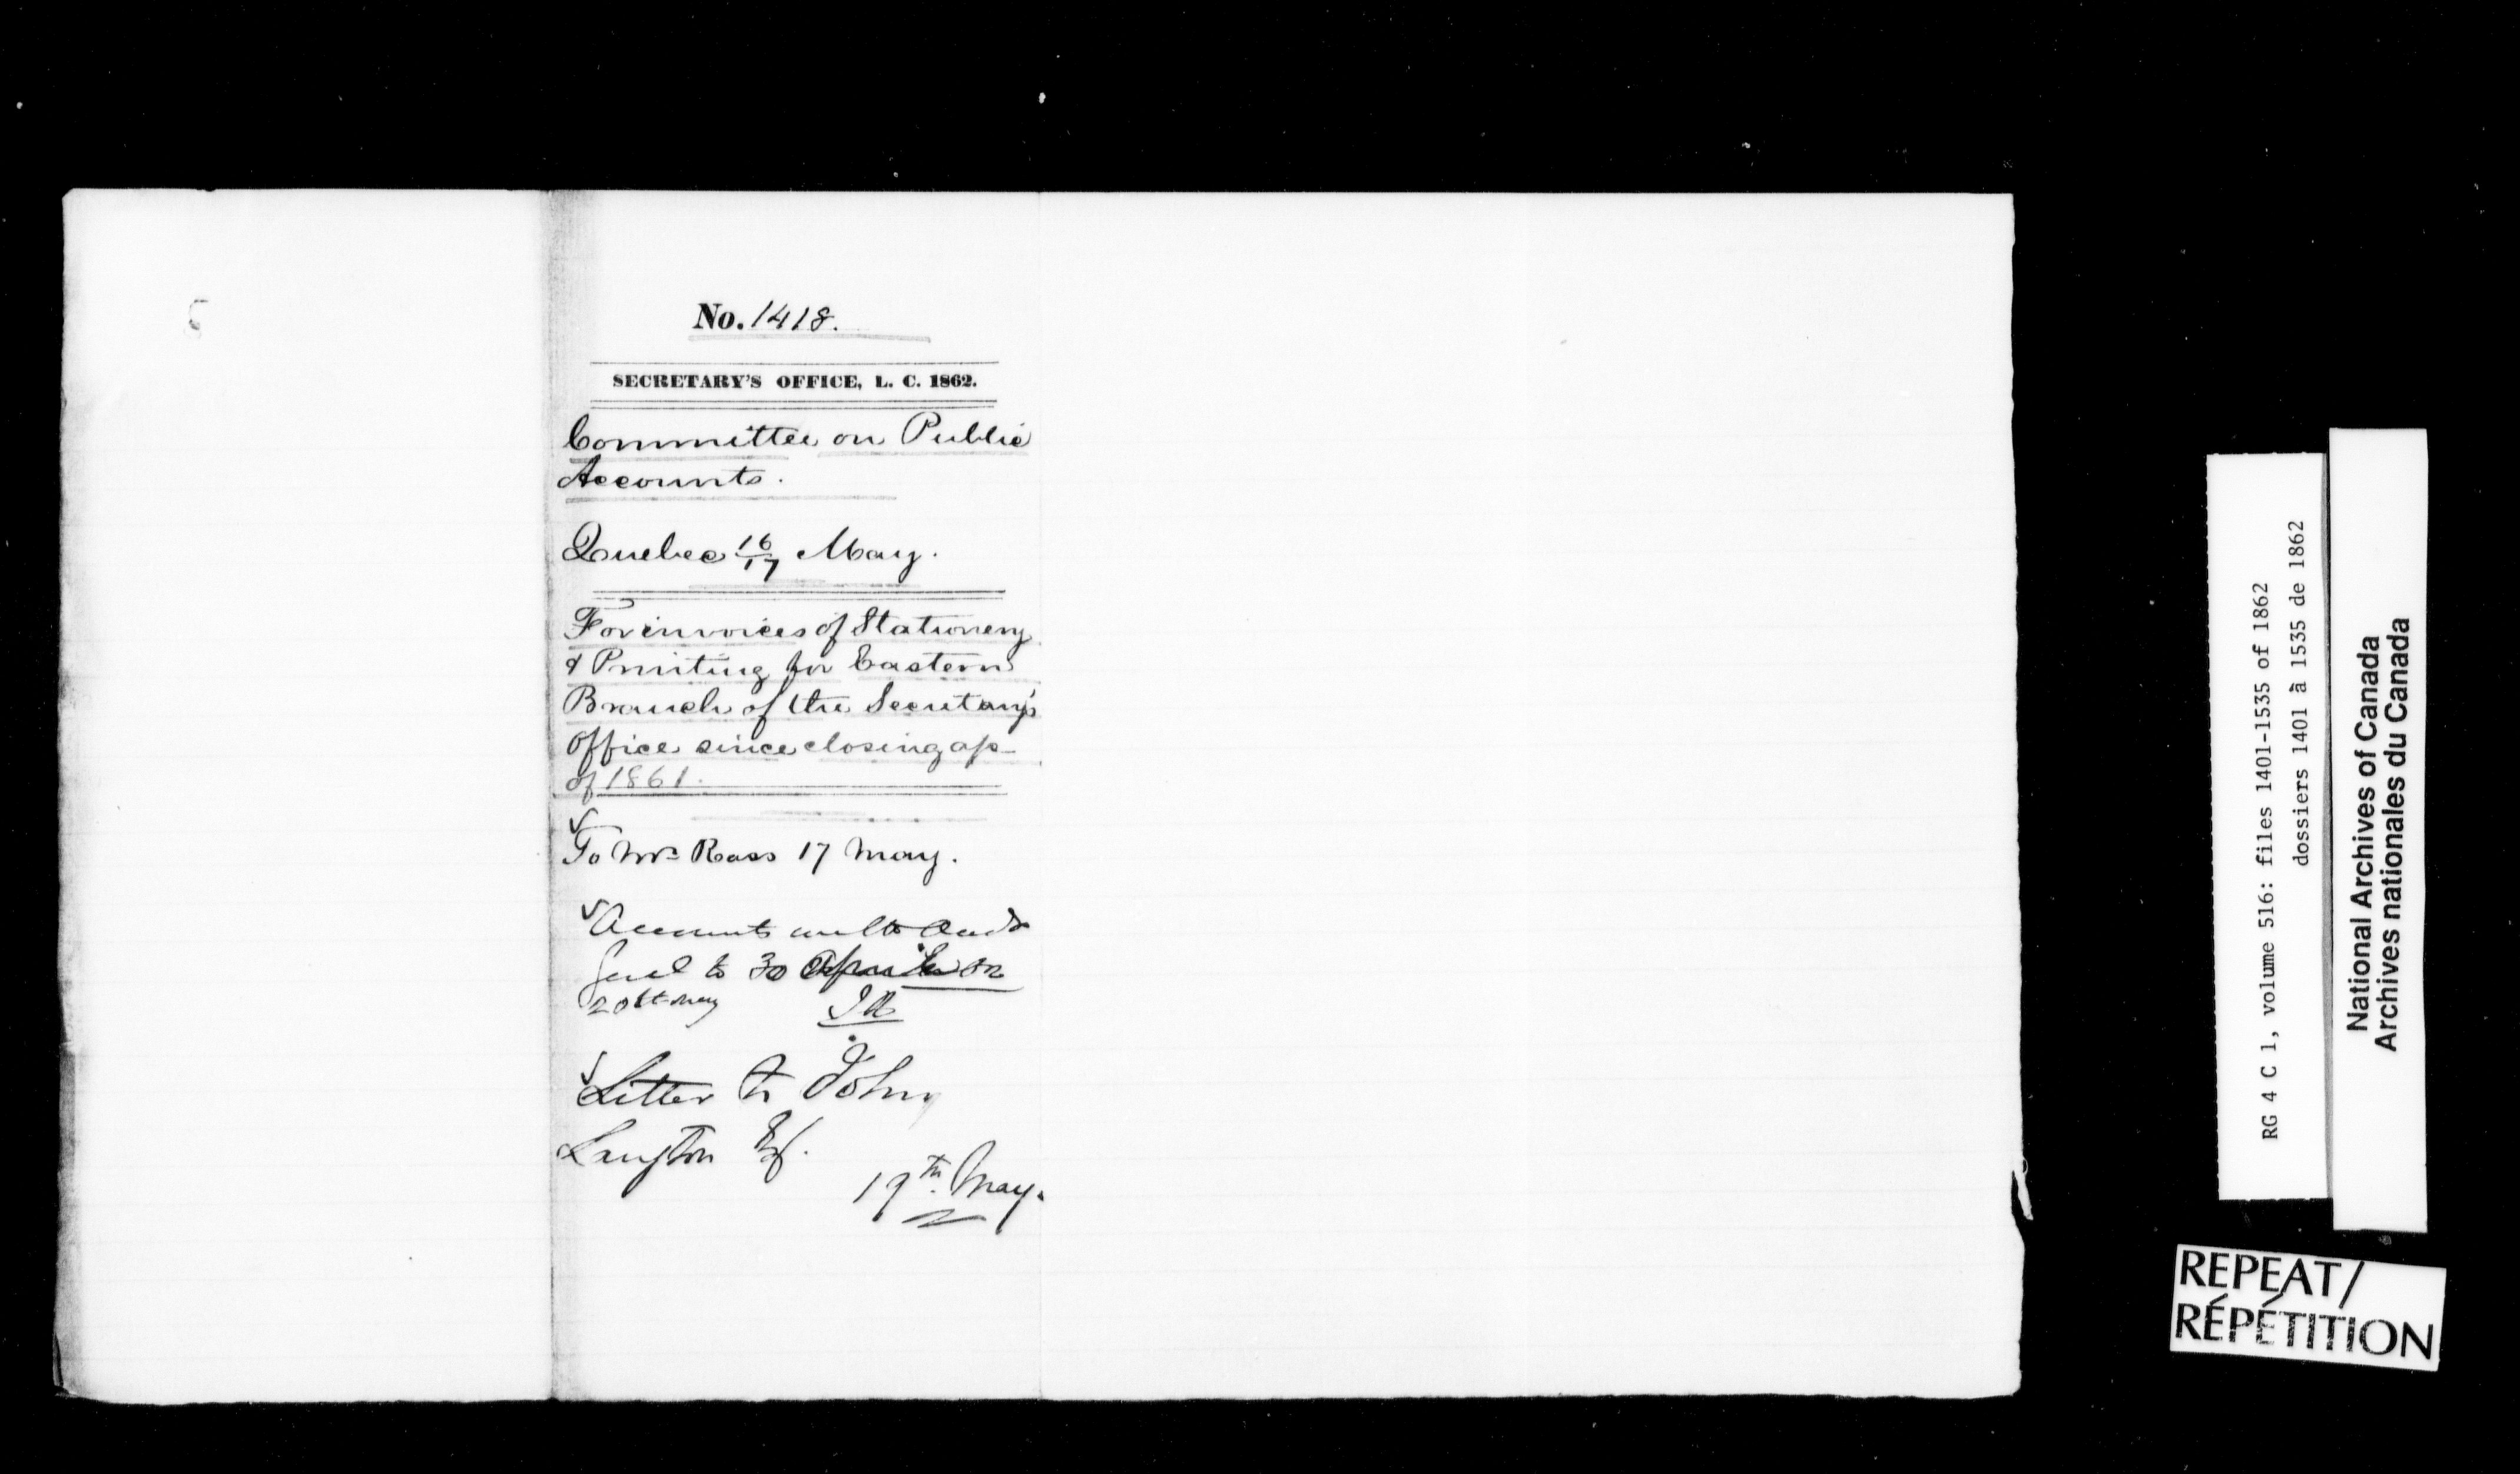 No. 1418.
SECRETARY'S OFFICE, L. C. 1862.
Committee on Public
Accounts.
Quebec 16/17 May.
For invoices of Stationery
& Printing for Eastern
Branch of the Secretary's
Office since closing a/c
of 1861.
To Mr Ross 17 May.
Accounts Aud
Genl to 30 April
20th May
Letter to John
Langton Esq.
19th May.
RG 4 C 1, volume 516: files 1401-1535 of 1862
dossiers 1401 à 1535 de 1862
National Archives of Canada
Archives nationales du Canada
REPEAT/
RÉPÉTITION